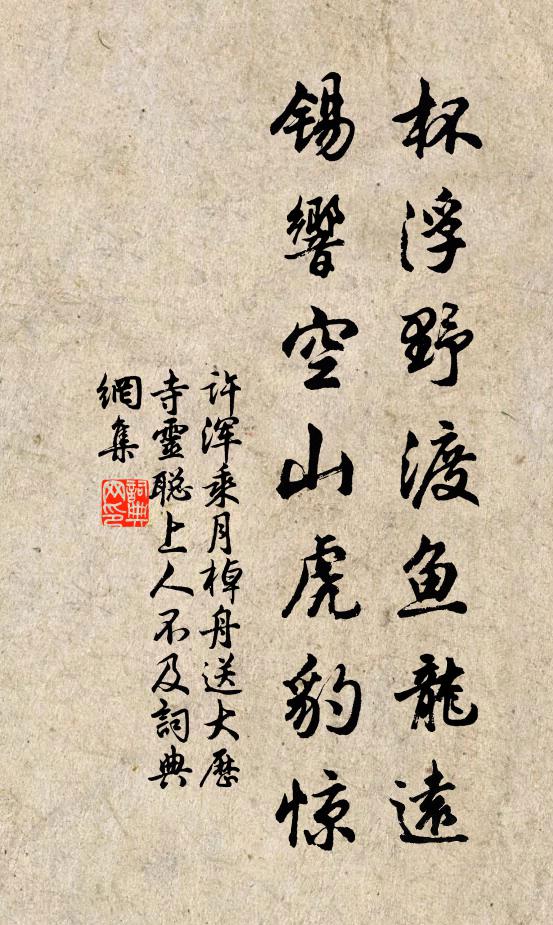 杯浮野渡鱼龍遠
锡響空山虎豹惊
许浑乘月棹舟送大歷
寺靈聪上人不及詞典
網集
詞典
网印